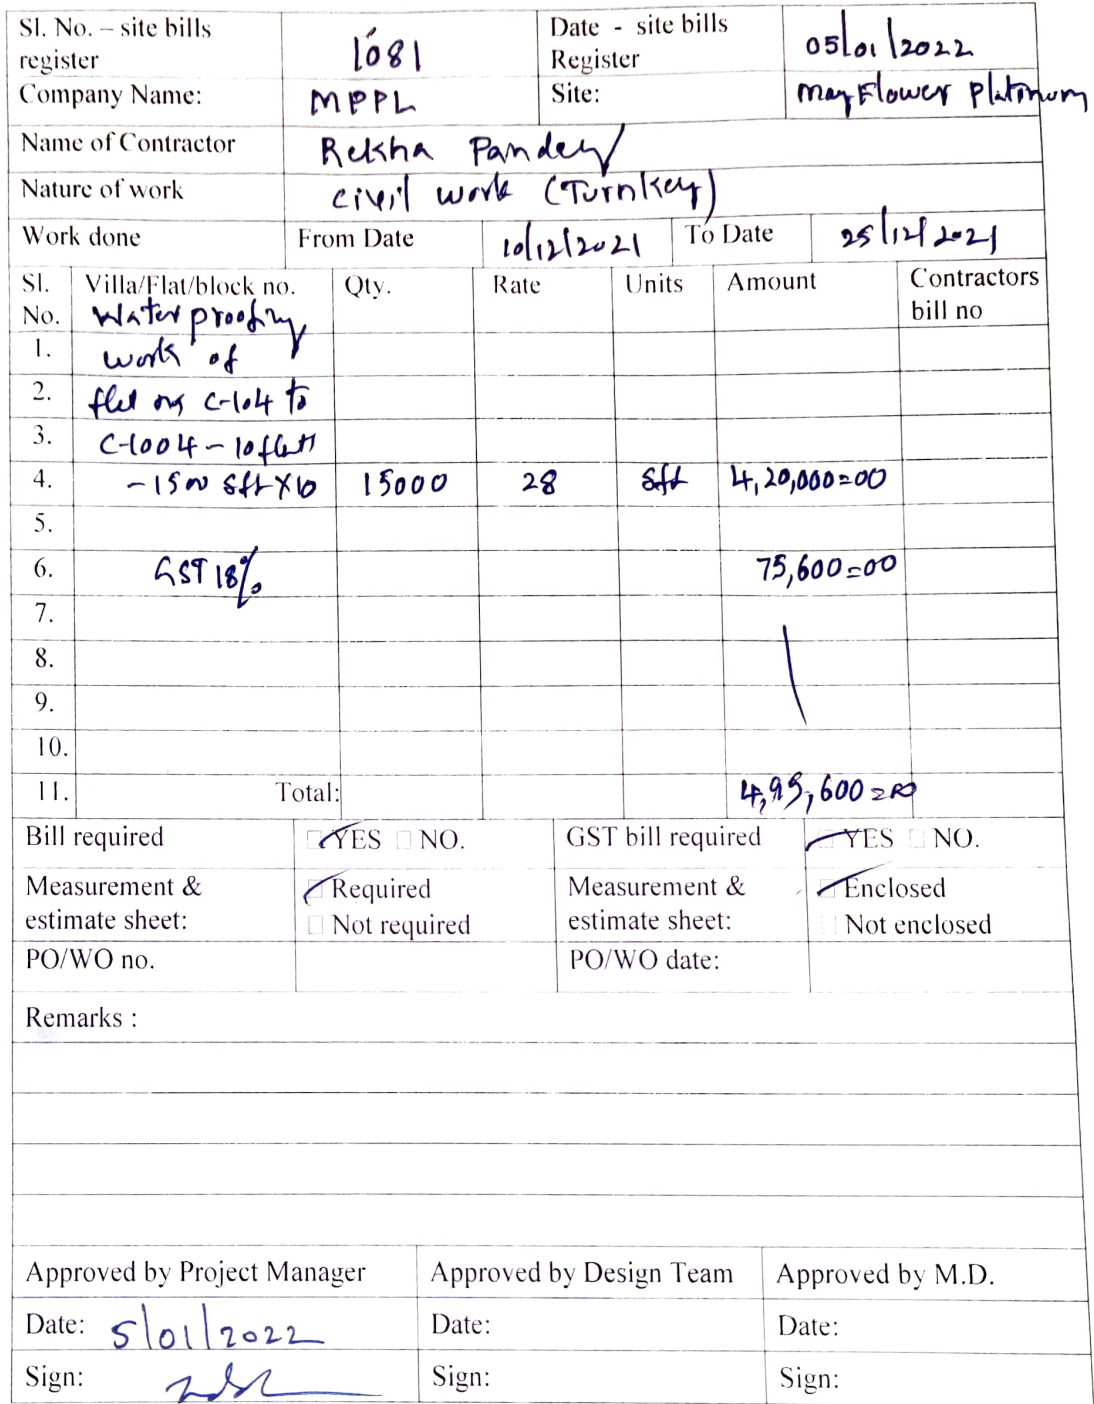 Sl. No. – site bills register 1081 Date - site bills Register 05/01/2022
Company Name: MPPL Site: Mayflower Platinum
Name of Contractor Rekha Pandey
Nature of work civil work (Turnkey)
Work done From Date 10/12/2021 To Date 25/12/2021
Sl. No. Villa/Flat/block no. Qty. Rate Units Amount Contractors bill no
Water proofing
1. work of
2. flat no C-104 to
3. C-1004 - 10 flats
4. - 1500 sft X 10 15000 28 sft 4,20,000=00
5.
6. GST 18% 75,600=00
7.
8.
9.
10.
11. Total: 4,95,600=00
Bill required YES NO. GST bill required YES NO.
Measurement & estimate sheet: Required Not required Measurement & estimate sheet: Enclosed Not enclosed
PO/WO no. PO/WO date:
Remarks :
Approved by Project Manager Approved by Design Team Approved by M.D.
Date: 5/01/2022 Date: Date:
Sign: Sign: Sign: